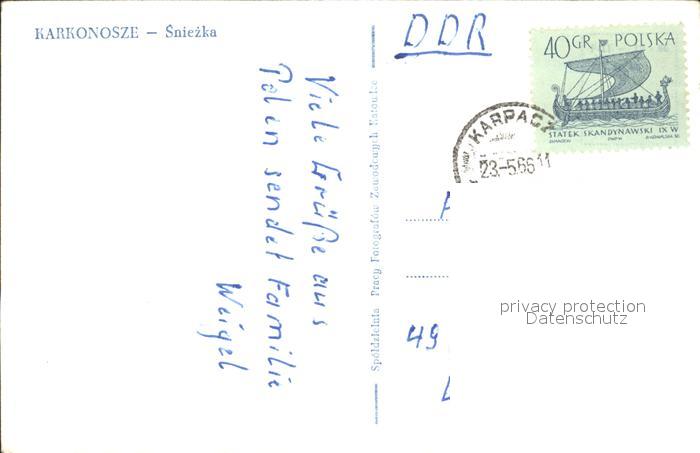 KARKONOSZE – Śnieżka
Viele Grüße aus
Polen sendet Familie
Weigel
Spółdzielnia Pracy Fotografów Zawodowych Katowice
DDR
40GR POLSKA
STATEK SKANDYNAWSKI IX W
KARPACZ
23.-5.66 11
49
privacy protection
Datenschutz